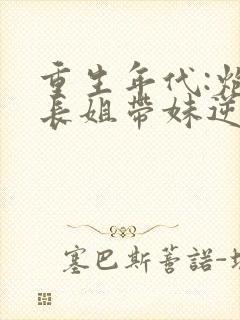 重生年代:炮
長姐帶妹逆
塞巴斯蒼諾-